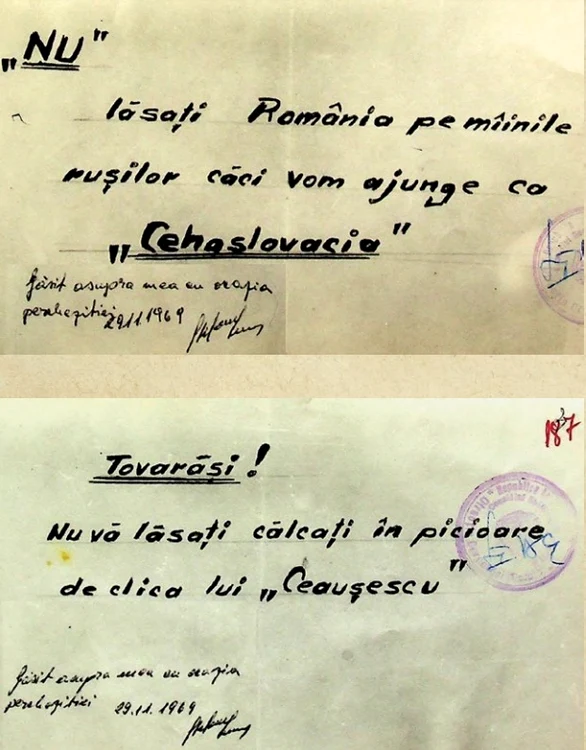 „NU"
lăsați România pe mîinile
rușilor căci vom ajunge ca
„Cehoslovacia"
găsit asupra mea cu ocazia
perchezitiei
29.11.1969
187
Tovarăși!
Nu vă lăsați călcați în picioare
de clica lui „Ceaușescu"
găsit asupra mea cu ocazia
perchezitiei 29.11.1969